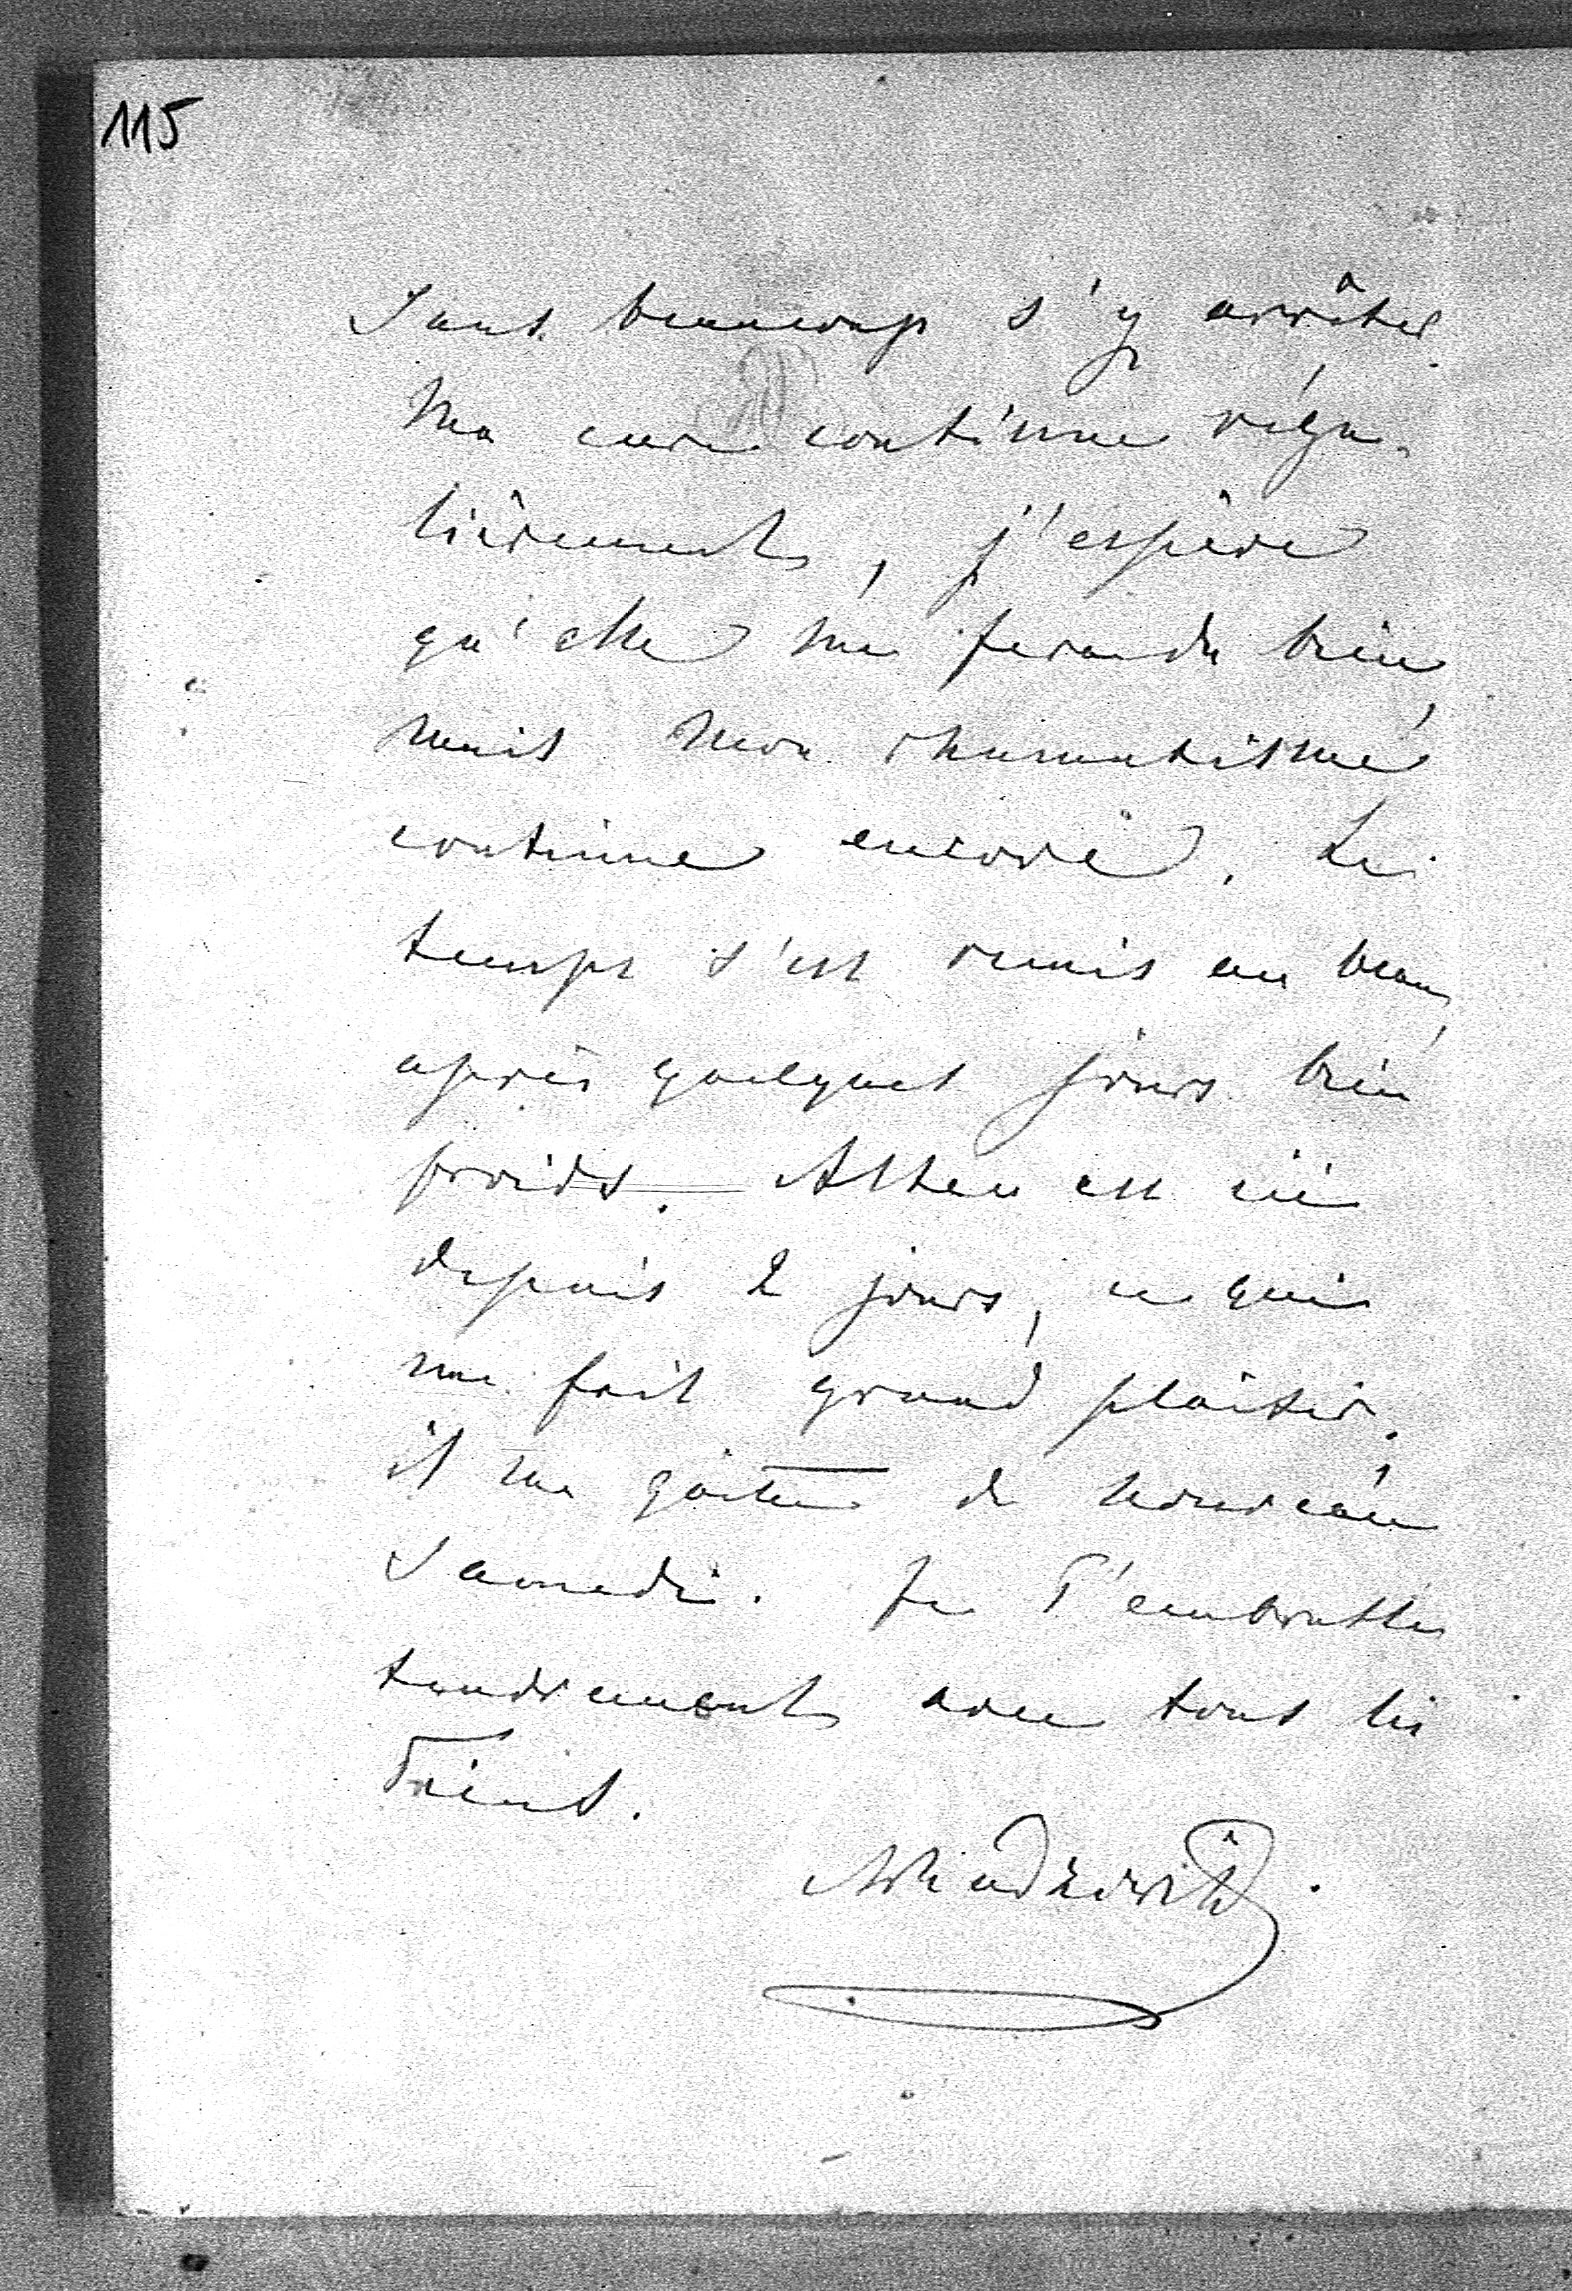 115
Sans beaucoup s'y arrêter.
Ma cure continue régu-
lièrement, j'espère
qu'elle me fera du bien,
mais mon rhumatisme
continue encore. Le
temps s'est remis au beau,
après quelques jours bien
froids. est ici
depuis 2 jours, ce qui
me fait grand plaisir.
il me quitte de nouveau
Samedi. Je T'embrasse
tendrement avec tous les
Tiens.